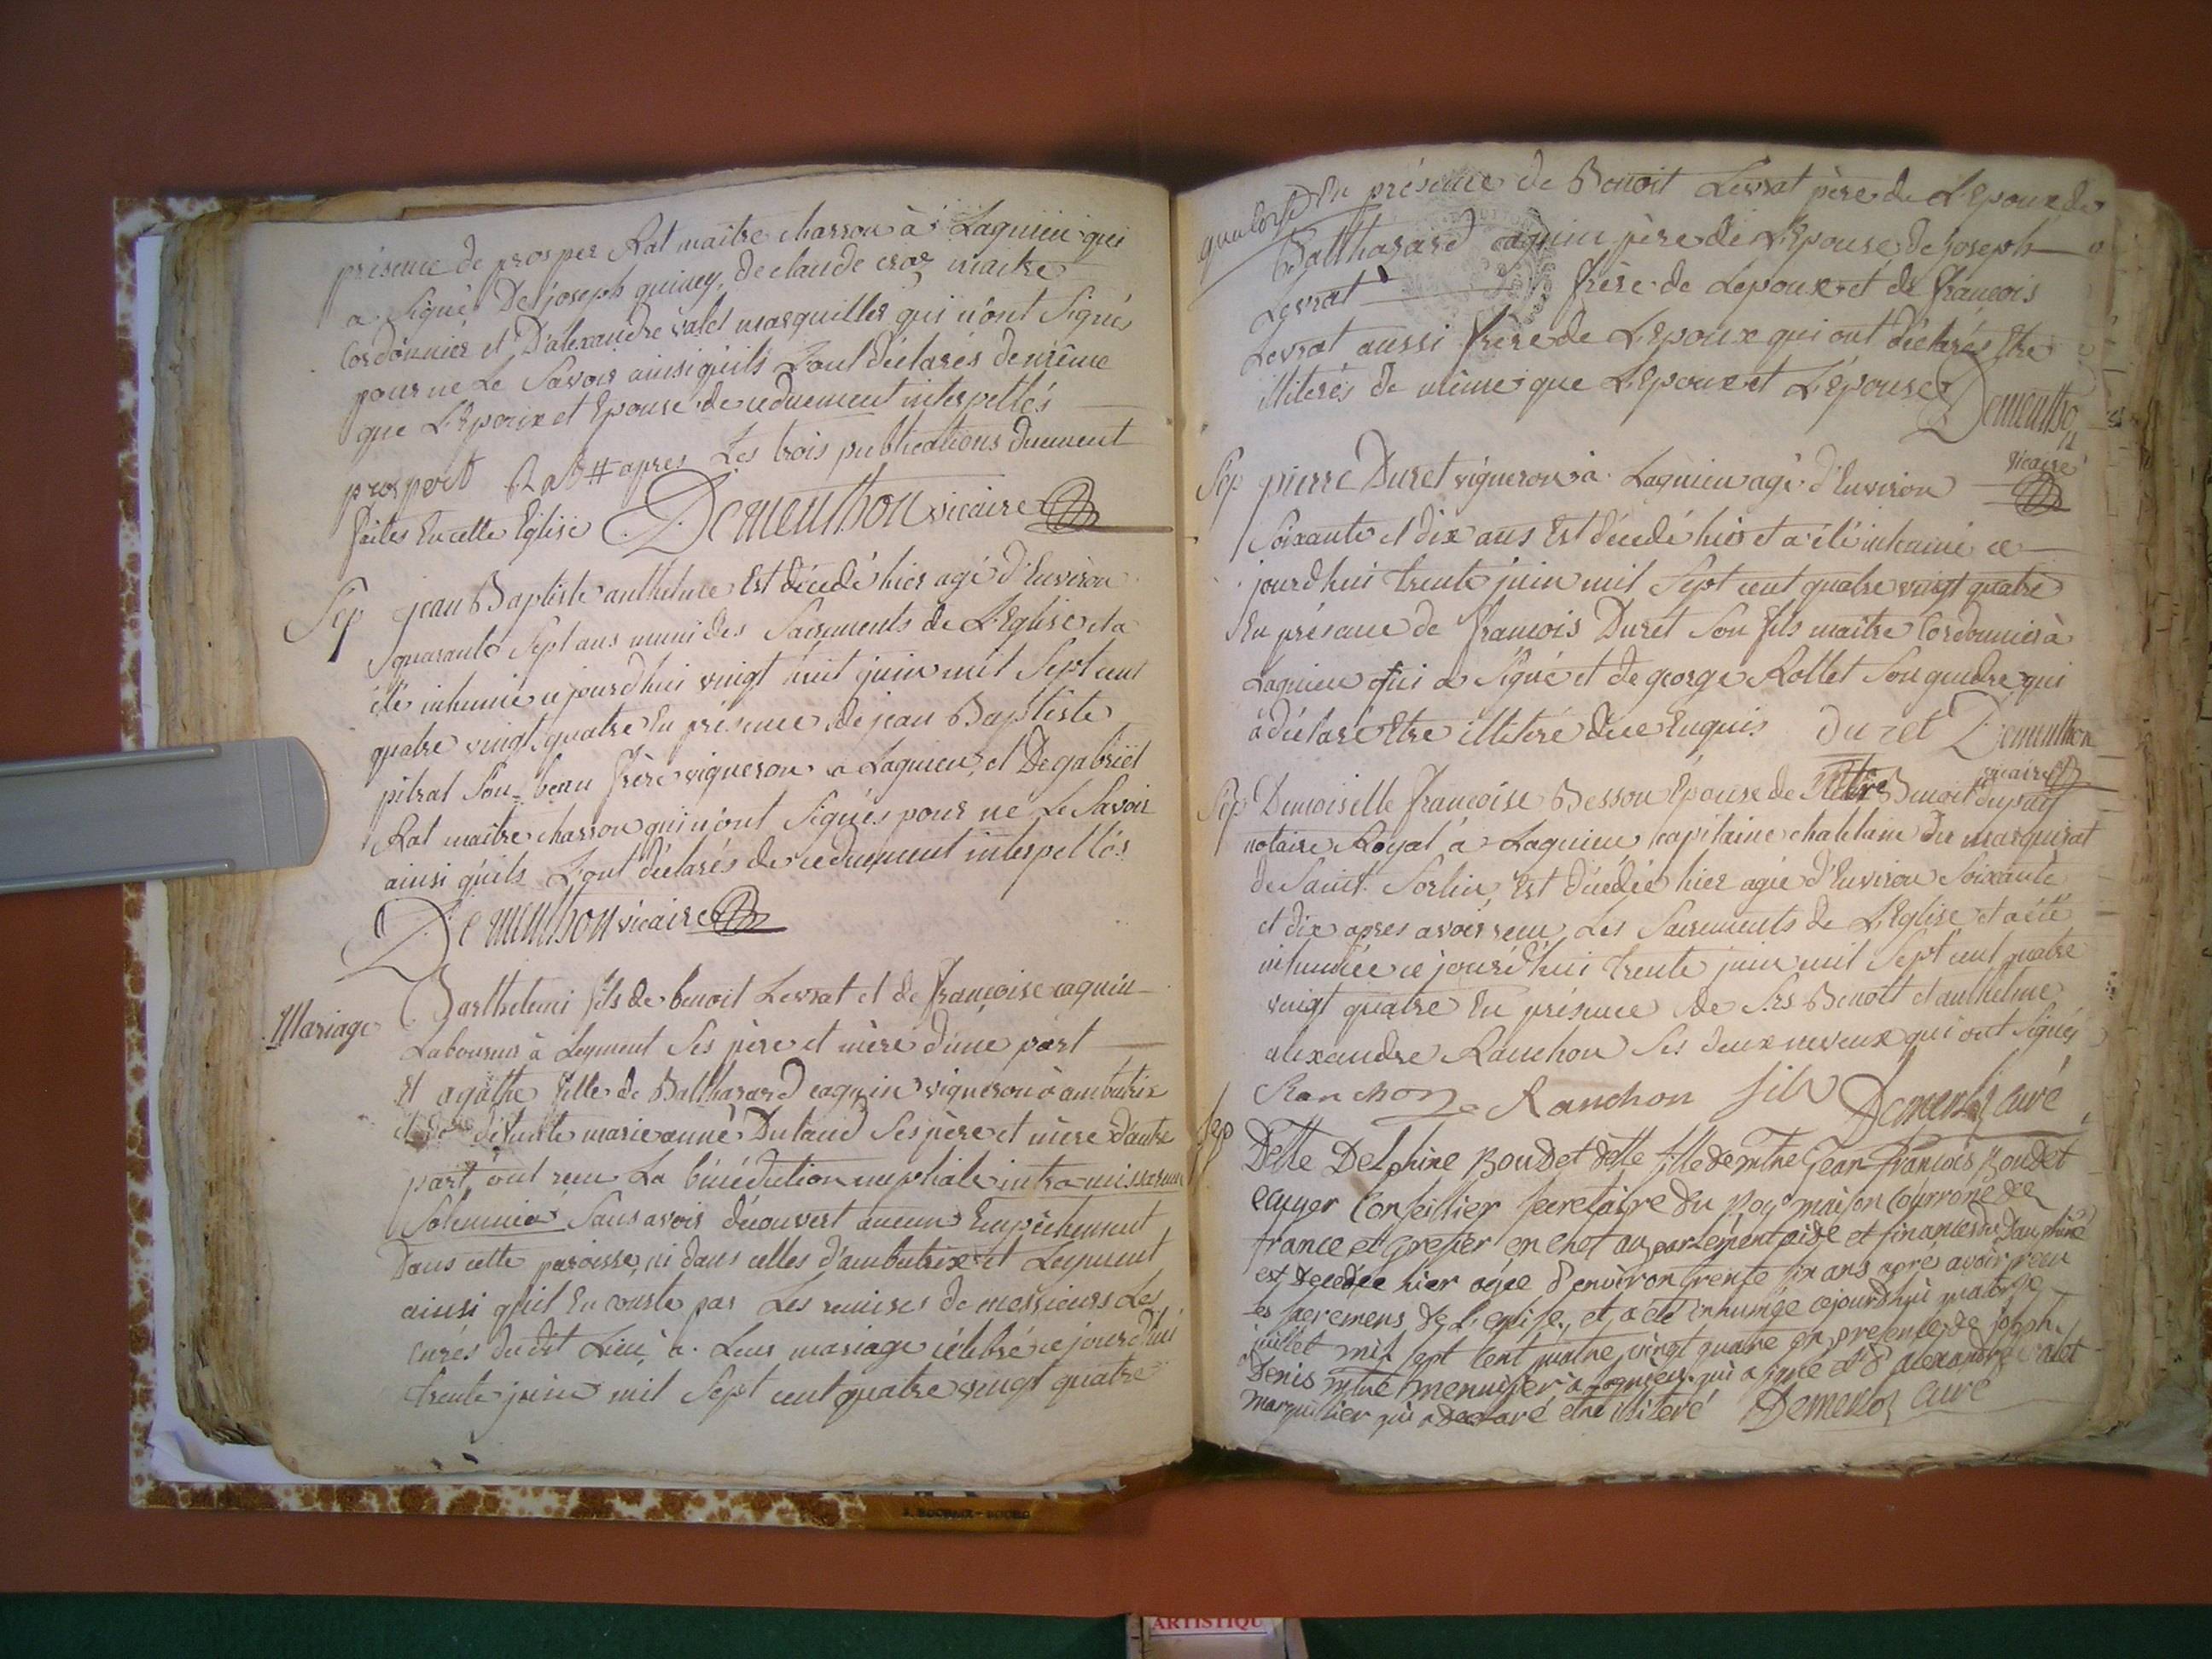 présence de prosper Rat maitre charron à Lagnieu qui
a Signé De joseph quincy, de claude croz maitre
Cordonnier et D'alexandre valet marguiller qui n'ont Signés
pour ne Le Savoir ainsi qu'ils L'ont déclarés de même
que L'Epoux et Epouse de ce duement interpellés
prosper Rat # apres Les trois publications duement
faites En cette Eglise Dementhon vicaire
Sep jean Baptiste anthelme Est décédé hier agé d'Environ
quarante Sept ans muni des Sacrements de L'Eglise et a
été inhumé ce jourd'hui vingt huit juin mil Sept cent
quatre vingt quatre En présence de jean Baptiste
pitrat Son beau frère vigneron a Lagnieu, et De gabriel
Rat maitre charron qui n'ont Signés pour ne Le Savoir
ainsi qu'ils L'ont déclarés de ce duement interpellés
Dementhon vicaire
Mariage Barthelemi fils de benoit Levrat et de françoise cagnin
Laboureur à Leyment Ses père et mère d'une part
Et agathe fille de Balthazard cagnin vigneron à ambutrix
et de défunte marie anne Dutaud Ses père et mère d'autre
part, ont recu La bénédiction nuptiale intra missarum
Solemnia Sans avoir découvert aucun Empêchement
Dans cette paroisse, ni dans celles d'ambutrix et Leyment
ainsi qu'il En conste par Les remises de messieurs Les
curés du dit Lieu, à Leur mariage célébré ce jourd'hui
trente juin mil Sept cent quatre vingt quatre
quatorze En présence de Benoit Levrat père de L'Epoux de
Balthazard cagnin père de L'Epouse de joseph
Levrat frère de Lepoux et de françois
Levrat aussi frère de L'Epoux qui ont déclarés Etre
illiterés de même que L'Epoux et L'épouse Dementhon
vicaire
Sep pierre Duret vigneron à Lagnieu agé d'Environ
Soixante et dix ans Est décédé hier et a été inhumé ce
jourd'hui trente juin mil Sept cent quatre vingt quatre
En présence de françois Duret Son fils maitre Cordonnier à
Lagnieu qui a Signé et de george Rollet Son gendre qui
a déclaré Etre illitéré de ce Enquis duret Dementhon
vicaire
Sep Demoiselle françoise Besson Epouse de Mtre Benoit dupuy
notaire Royal à Lagnieu capitaine chatelain du marquisat
de Saint Sorlin, Est décédée hier agée d'Environ Soixante
et dix apres avoir recu Les Sacrements de L'Eglise et a été
inhumée ce jourd'hui trente juin mil Sept cent quatre
vingt quatre En présence de Srs Benoit et anthelme
alexandre Ranchon Ses deux neveux qui ont Signés
Ranchon Ranchon fils Demerloz curé
Sep Delle Delphine Boudet delle fille de mtre Jean François Boudet
ecuyer Conseillier secretaire du Roy maison Courrone de
france et Grefier en chef au parlement aide et finances du dauphiné
est decedée hier agée d'environ trente six ans apré avoir recu
les sacremens de L'eglise, et a été inhumée cejourdhui quatorze
juillet mil sept cent quatre vingt quatre en presence de joseph
Denis mtre menuisier à Lagnieu qui a signé et d'alexandre valet
marguillier qui a declaré etre illiteré Demerloz curé
ARTISTIQU